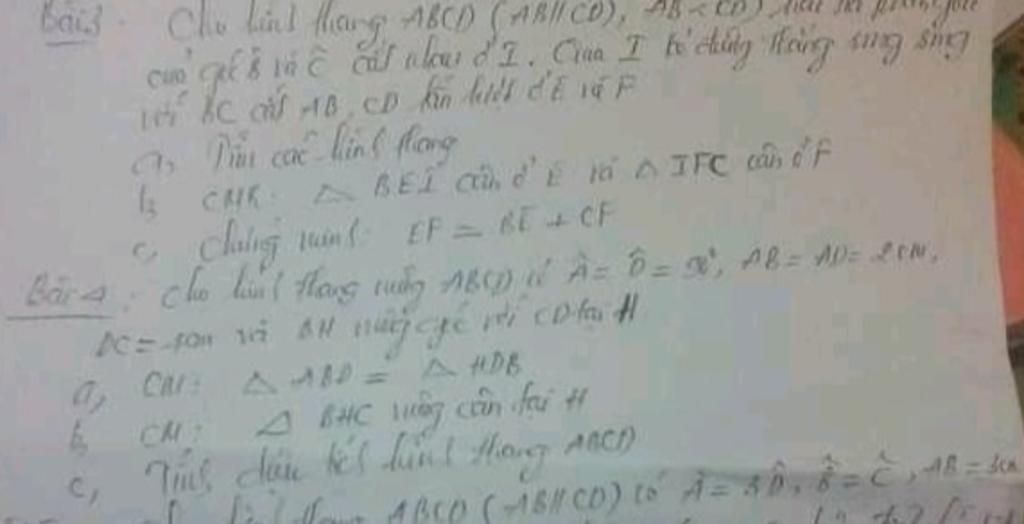 Bài 3 Cho hình thang ABCD (AB//CD), AB < CD) hai tia phân giác
của góc B và C cắt nhau ở I. Qua I kẻ đường thẳng song song
với BC cắt AB, CD lần lượt ở E và F
a, Tìm các hình thang
b, CMR: △ BEI cân ở E và △ IFC cân ở F
c, Chứng minh: EF = BE + CF
Bài 4: Cho hình thang vuông ABCD có Â = D̂ = 90°, AB = AD = 2cm,
DC = 4cm và BH vuông góc với CD tại H
a, CM: △ ABD = △ HDB
b, CM: △ BHC vuông cân tại H
c, Tính diện tích hình thang ABCD
hình thang ABCD (AB//CD) có Â = 3D̂, B̂ = Ĉ, AB = 3cm